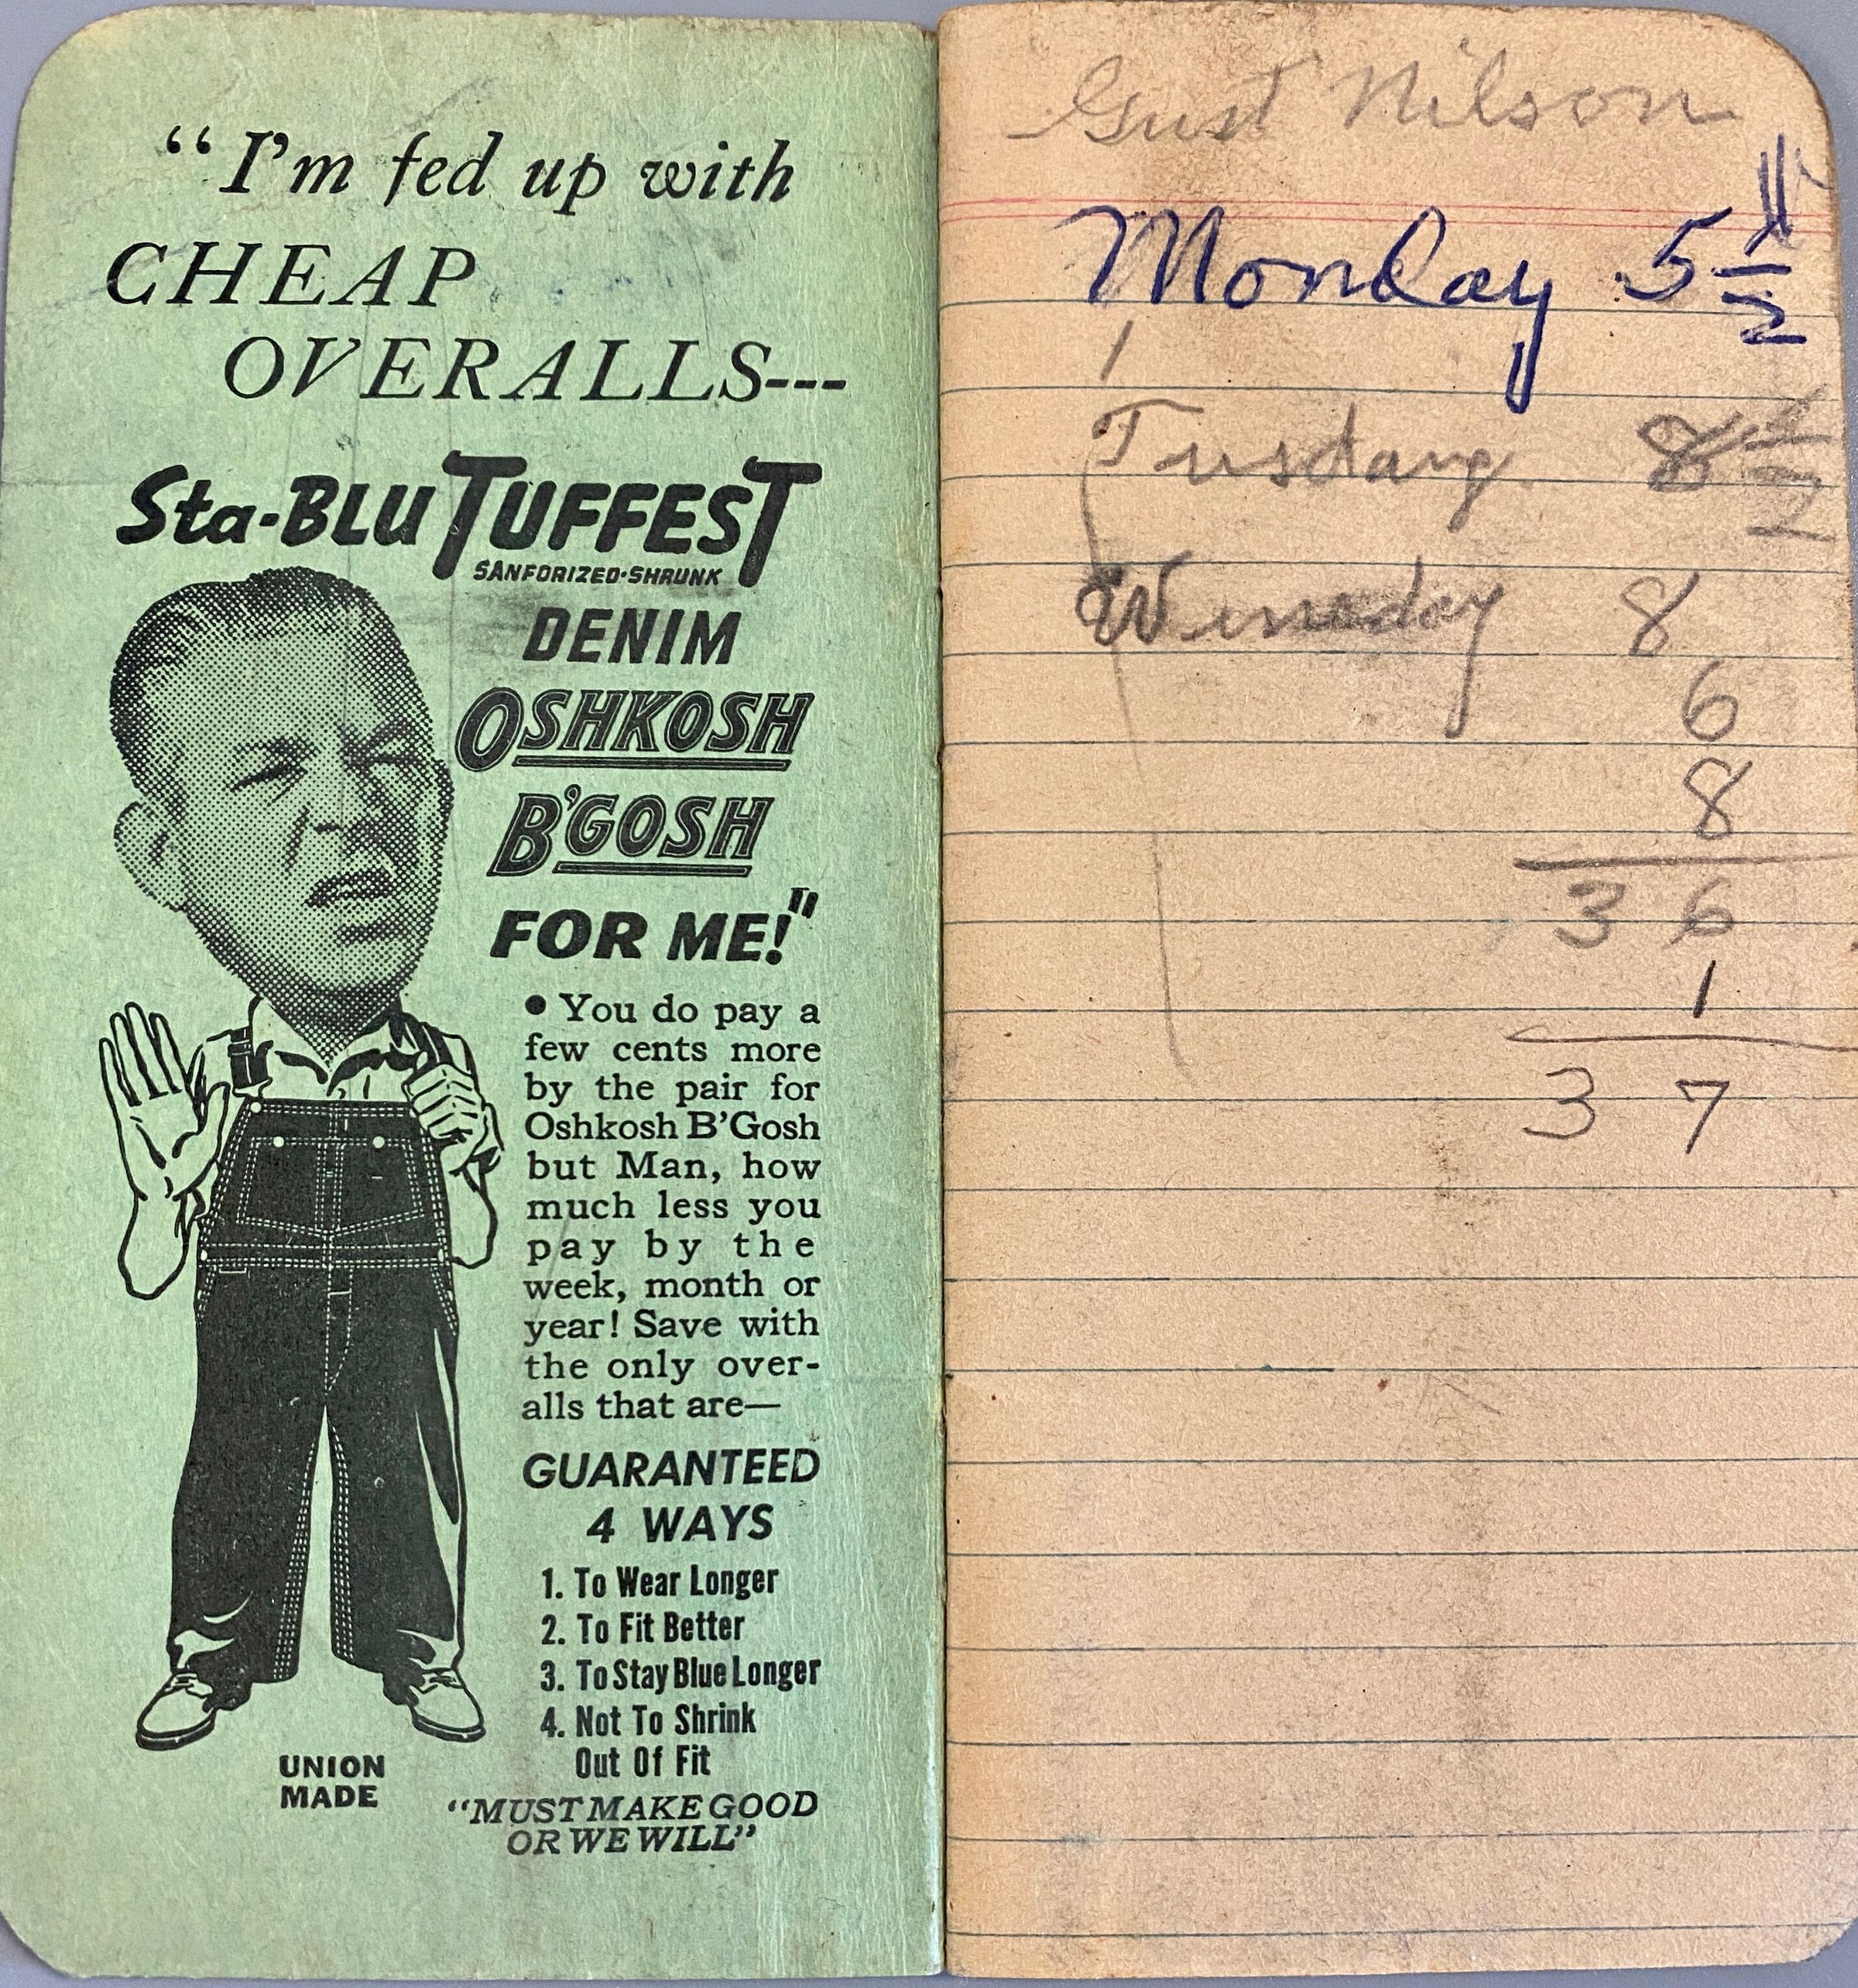 “I’m fed up with
CHEAP
OVERALLS---
Sta-Blu TUFFEST
SANFORIZED·SHRUNK
DENIM
OSHKOSH
B’GOSH
FOR ME!”
• You do pay a
few cents more
by the pair for
Oshkosh B’Gosh
but Man, how
much less you
pay by the
week, month or
year! Save with
the only over-
alls that are—
GUARANTEED
4 WAYS
1. To Wear Longer
2. To Fit Better
3. To Stay Blue Longer
4. Not To Shrink
Out Of Fit
UNION
MADE
“MUST MAKE GOOD
OR WE WILL”
Gust Nilson
Monday 5 1/2
Tusdany 8 1/2
Wensday 8
6
8
3 6
1
3 7